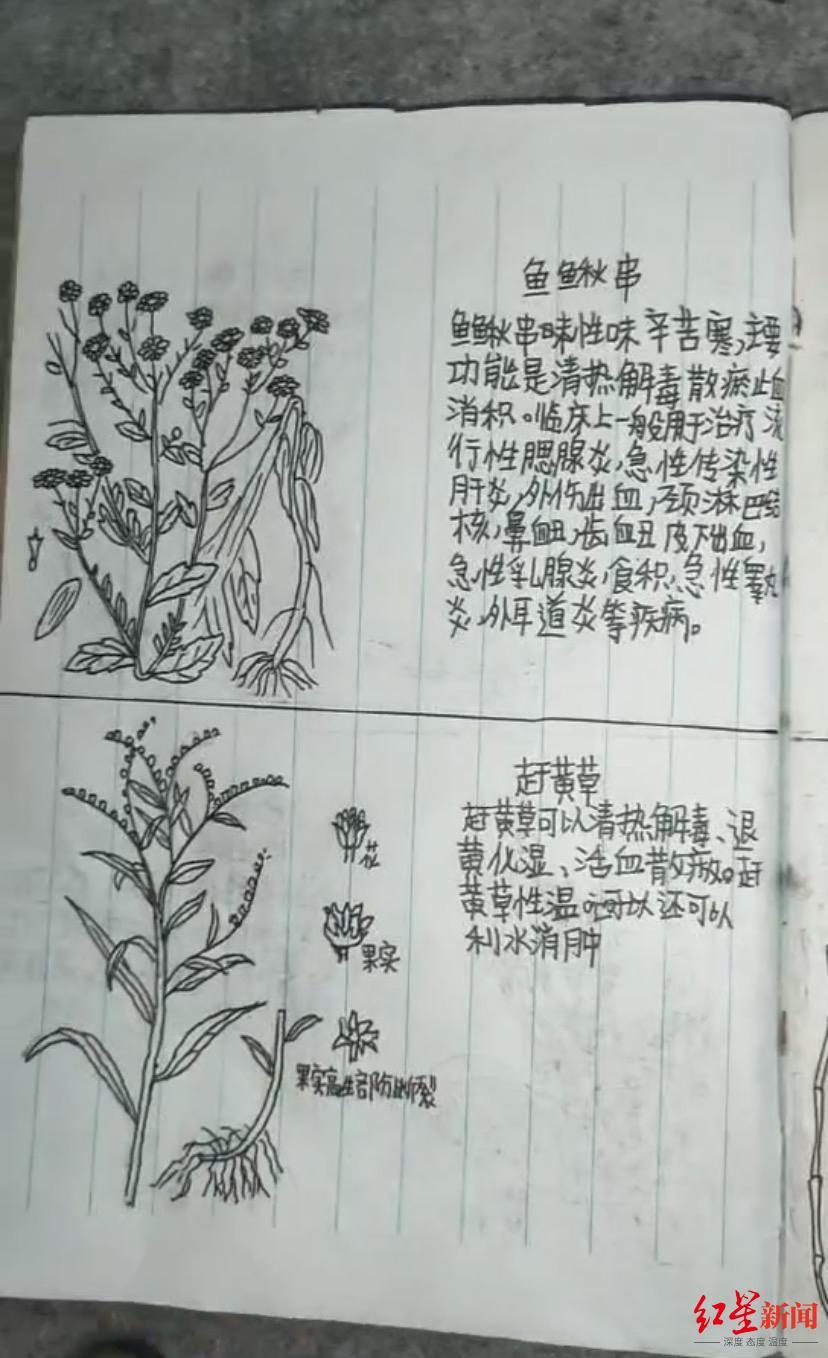 鱼鳅串
鱼鳅串味性味辛苦寒,主要
功能是清热解毒散瘀止血
消积。临床上一般用于治疗流
行性腮腺炎,急性传染性
肝炎,外伤出血,颈淋巴结
核,鼻衄,齿衄皮下出血,
急性乳腺炎,食积,急性睾丸
炎,外耳道炎等疾病。
赶黄草
赶黄草可以清热解毒、退
黄化湿、活血散瘀。赶
黄草性温。可以还可以
利水消肿
花
果实
果实
裂
红星新闻
深度 态度 温度